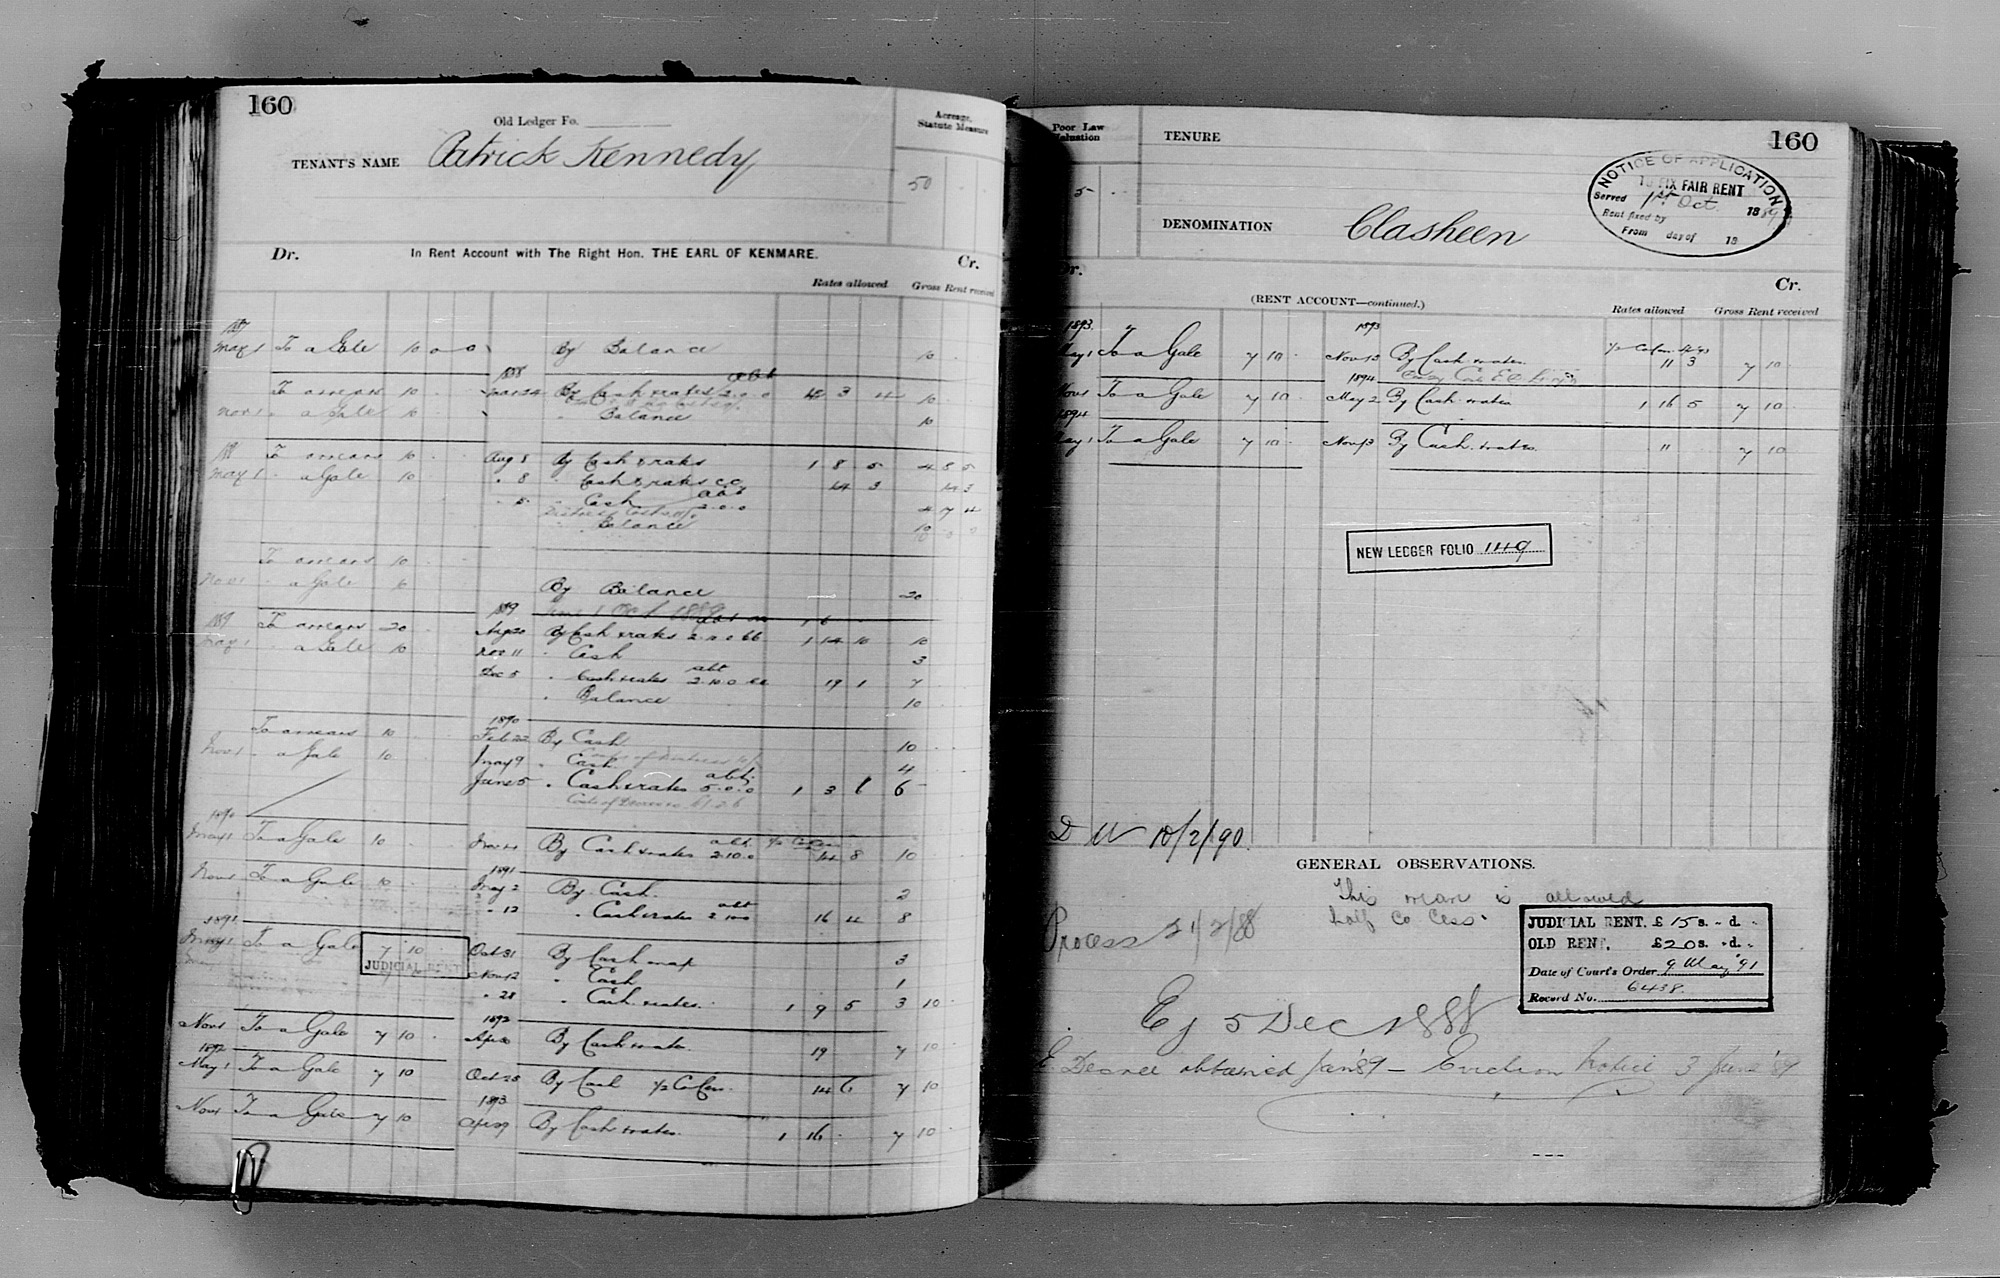 160
Old Ledger Fo.
TENANT'S NAME Patrick Kennedy
Acreage, Statute Measure
50
Dr. In Rent Account with The Right Hon. THE EARL OF KENMARE. Cr.
Rates allowed Gross Rent received
1887
May 1 To a Gale 10 0 0 By Balance 10
1888
To arrears 10 By Cash & rates 2.0.0 abt 4 3 4 10
Nov 1 " a Gale 10 " Balance 10
To arrears 10 Aug 8 By Cash & rates 1 8 5 4 8 5
May 1 " a Gale 10 " 8 " Cash & rates CC 14 3 14 3
" Cash abt 2.0.0 4 7 4
" Balance 10 0 0
To arrears 10
Nov 1 " a Gale 10 By Balance 20
1889
1889 To arrears 20 By Cash & rates 1 14 10 10
May 1 " a Gale 10 " Cash 3
Dec 5 " Cash & rates abt 2.10.0 19 1 7
" Balance 10
1890
To arrears 10 Feb 22 By Cash 10
Nov 1 " a Gale 10 May 9 " Cash 4
June 5 " Cash & rates abt 5.0.0 1 3 6 6
1890
May 1 To a Gale 10 By Cash & rates abt 2.10.0 14 8 10
1891
Nov 1 To a Gale 10 May 2 By Cash 2
" 12 " Cash & rates abt 2.10.0 16 4 8
1891
May 1 To a Gale 7 10 Oct 31 By Cash 3
JUDICIAL RENT
Nov 12 " Cash 1
" 28 " Cash & rates 1 9 5 3 10
1892
Nov 1 To a Gale 7 10 By Cash & rates 19 7 10
1892
May 1 To a Gale 7 10 Oct 25 By Cash 14 6 7 10
1893
Nov 1 To a Gale 7 10 By Cash & rates 1 16 7 10
160
Poor Law Valuation
5
TENURE
NOTICE OF APPLICATION
TO FIX FAIR RENT
Served 1st Oct. 1889
Rent fixed by
From day of 18
DENOMINATION Clasheen
Dr. Cr.
(RENT ACCOUNT—continued.)
Rates allowed Gross Rent received
1893 1893
May 1 To a Gale 7 10 Nov 13 By Cash & rates 11 3 7 10
1894
Nov 1 To a Gale 7 10 May 2 By Cash & rates 1 16 5 7 10
1894
May 1 To a Gale 7 10 Nov 13 By Cash & rates 11 7 10
NEW LEDGER FOLIO 1119
10/2/90
GENERAL OBSERVATIONS.
This man is allowed
half Co Cess.
Process 21/2/88
JUDICIAL RENT. £15 s. d.
OLD RENT. £20 s. d.
Date of Court's Order 9 May '91
Record No. 6438.
Ej 5 Dec 1888
Decree obtained Jan '89 — Eviction Notice 3 June '89